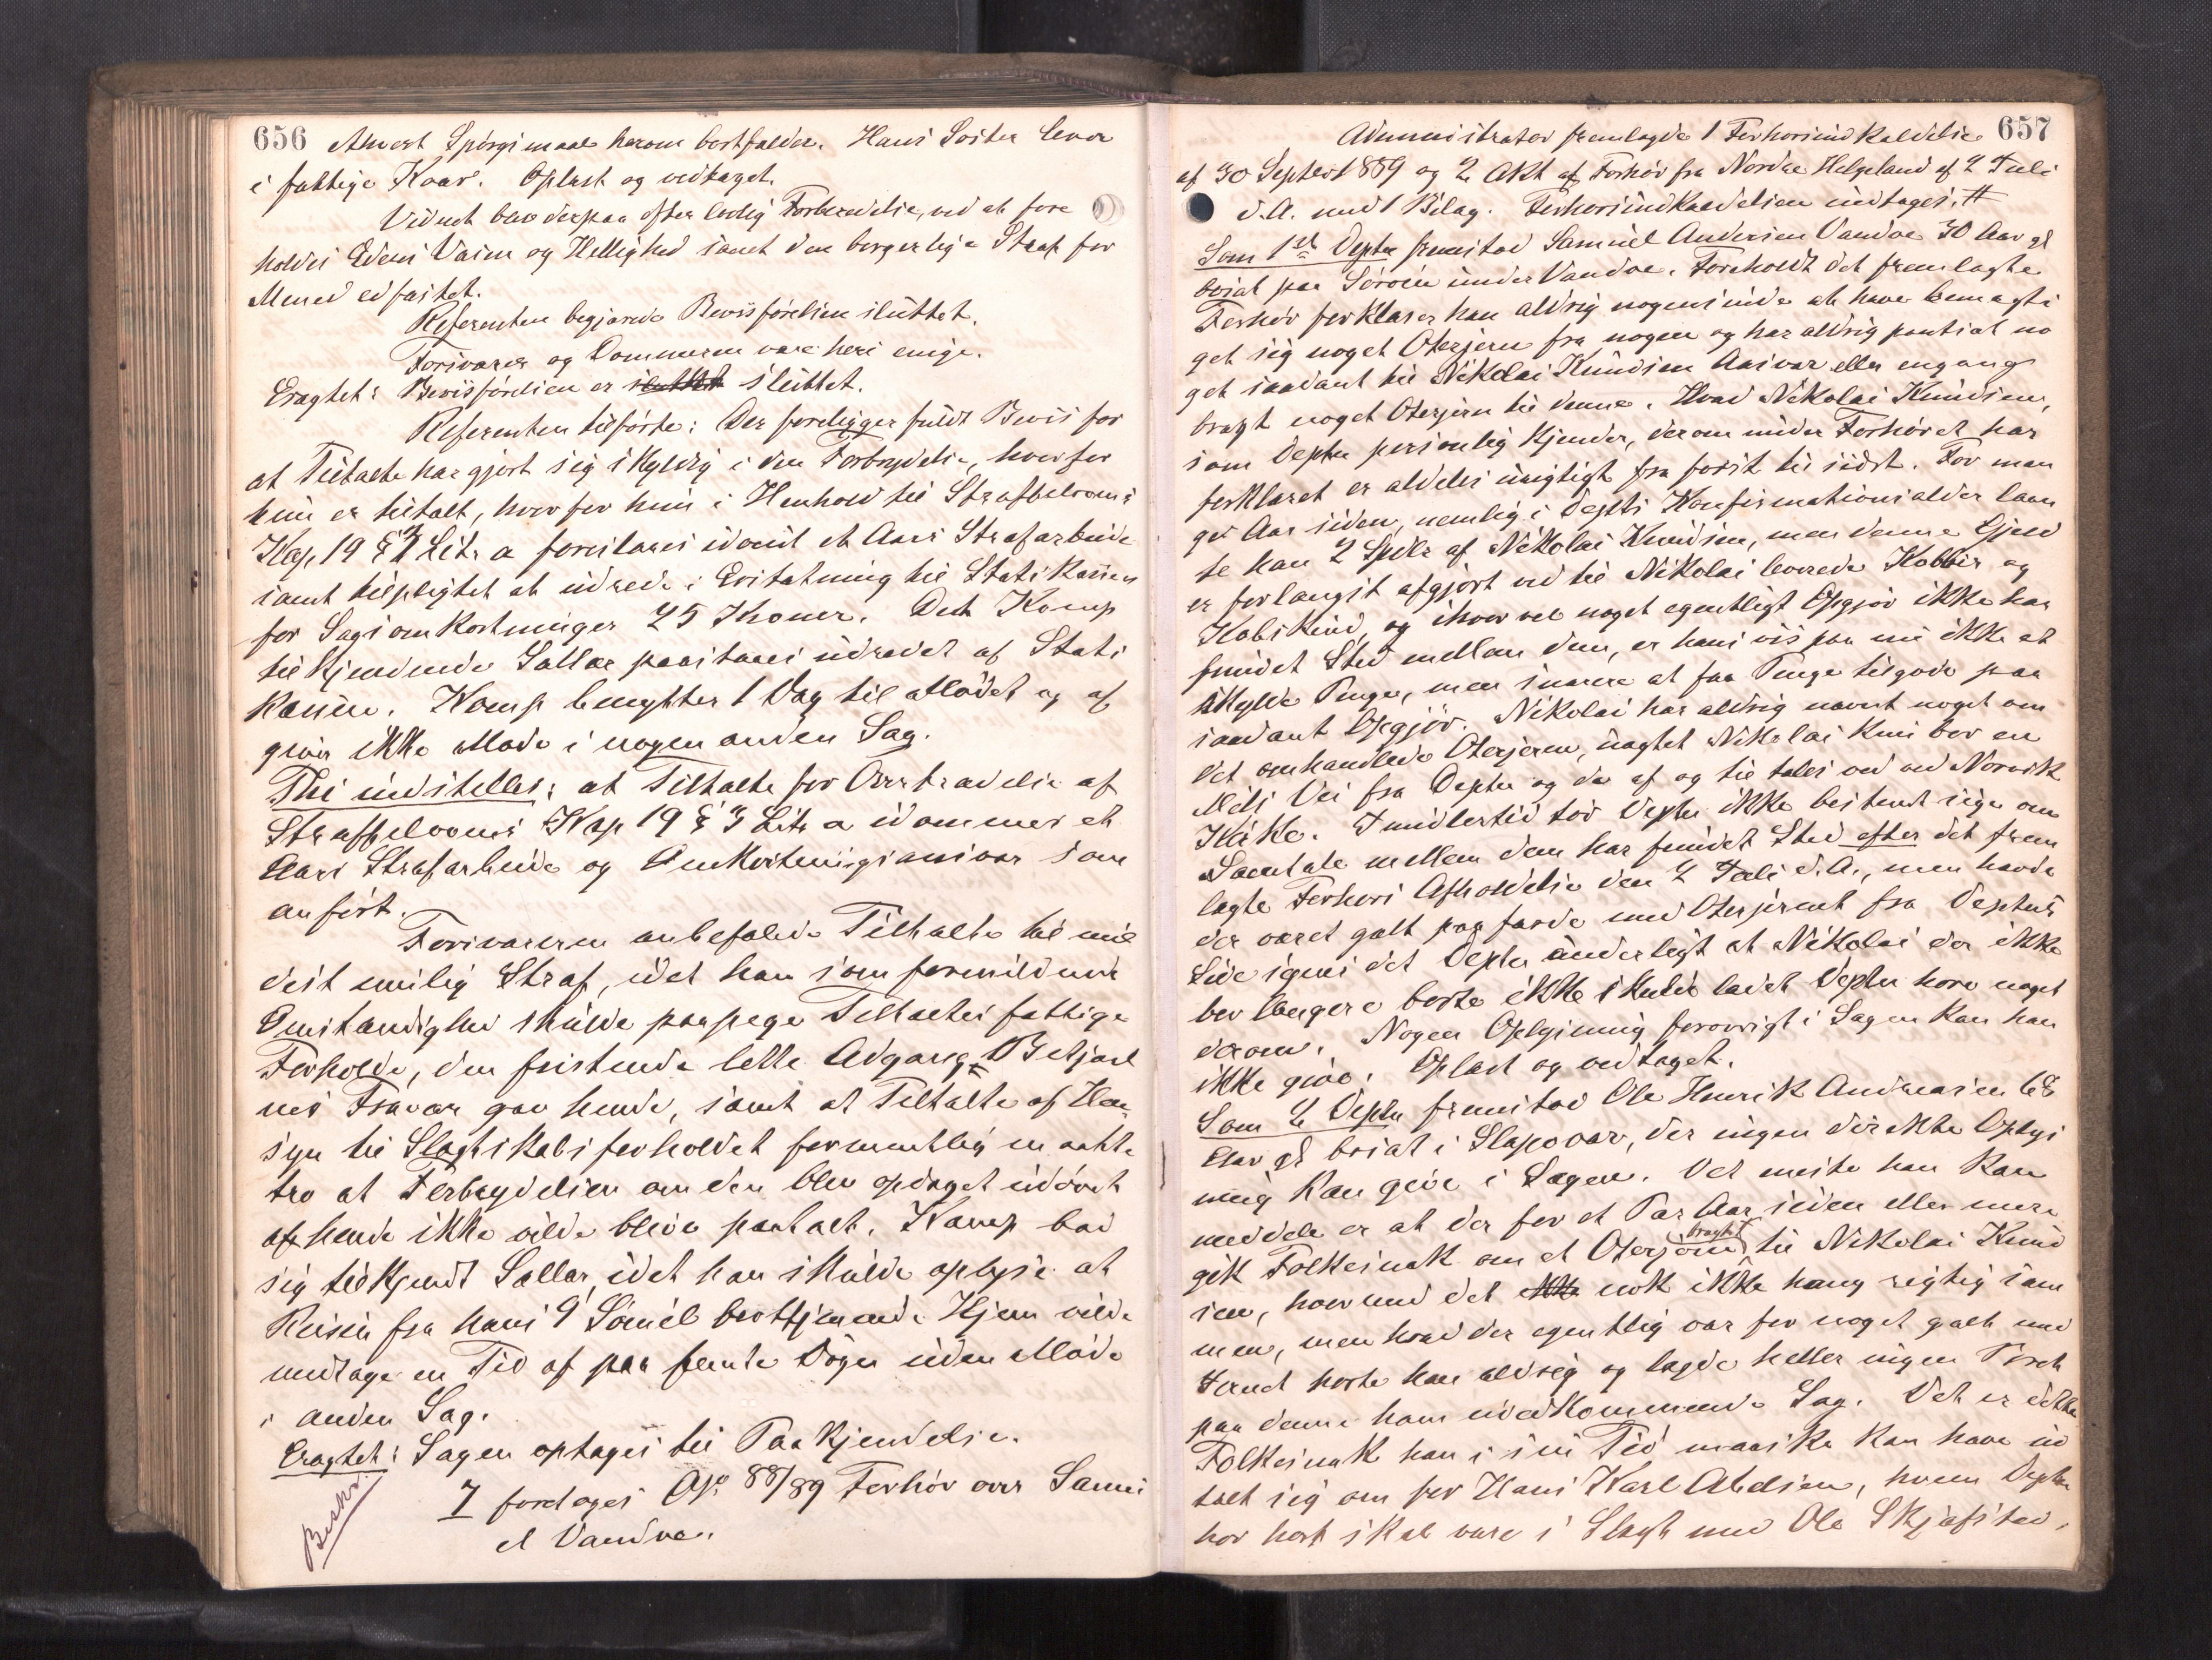 656
Ahvert Spörgsmaal herom bortfalder. Hans Söster lever
i fattige Kaar. Oplæst og vedtaget.
Vidnet blev derpaa efter lovlig Forberedelse, ved at fore
holdes Edens Værn og Hellighed samt den borgerlige Straf for
Mened edfæstet.
Referenten begjærede Bevisförelsen sluttet.
Forsvarer og Dommeren vare heri enige.
Eragtet: Bevisförelsen er sluttet sluttet.
Referenten tilförte: Der foreligger fuldt Bevis for
at Tiltalte har gjort sig skyldig i den Forbrydelse, hvorfor
hun er tiltalt, hvorfor hun i Henhold til Straffelovens
Kap. 19 § 3 Litr a foreslaaes idömt et Aars Strafarbeide
samt tilpligtet at udrede i Erstatning til Statskassen
for Sagsomkostninger 25 Kroner. Det Komp
tilkjendende Sallar paastaaes udredet af Stats
kassen. Komp benytter 1 Dag til Mödet og af
giver ikke Möde i nogen anden Sag.
Thi indstilles: at Tiltalte for Overtrædelse af
Straffelovens Kap 19 § 3 Litr a idömmes et
Aars Strafarbeide og Omkostningsansvar som
anfört.
Forsvareren anbefalede Tiltalte til mil
dest mulig Straf, idet han som formildende
Omstændighed skulde paapege Tiltaltes fattige
Forholde, den fristende lette Adgang Betjænt
nes Fravær gav hende, samt at Tiltalte af Hen
syn til Slagtskabsforholdet formentlig maatte
tro at Forbrydelsen om den blev opdaget udövet
af hende ikke vilde blive paatalt. Kamp bad
sig tilkjendt Sallar, idet han skulde oplyse at
Reisen fra hans 9 Sömil bortliggende Hjem vilde
medtage en Tid af paa femte Dögn uden Möde
i anden Sag.
Eragtet: Sagen optages til Paakjendelse.
7 foretoges Ojs 88/89 Forhör over Samu
el Vandve.
Beskr
657
Administrator fremlagde 1 Forhörsindkaldelse
af 30 Septbr 1889 og 2 Akt af Forhör fra Nordre Helgeland af 2 Juli
d.A. med 1 Bilag. Forhörsindkaldelsen indtages. #
Som 1ste Deptn fremstod Samuel Andersen Vandve 30 Aar gl
bosat paa Söröen under Vandve. Foreholdt det fremlagte
Forhör forklarer han aldrig nogensinde at have bemægti
get sig noget Oterjern fra nogen og har aldrig pantsat no
get saadant til Nikolai Knudsen Aasvær eller engang
bragt noget Oterjern til denne. Hvad Nikolai Knudsen,
som Deptn personlig kjender, derom under Forhöret har
forklaret er aldeles urigtigt fra först til sidst. For man
ge Aar siden, nemlig i Deptts Konfirmationsalder laan
te han 2 Spdlr af Nikolai Knudsen, men denne Gjeld
er forlængst afgjort ved til Nikolai leverede Kobber og
Kobskind, og ihvorvel noget egentligt Opgjör ikke har
fundet Sted mellem dem, er han vis paa nu ikke at
skylde Penge, men snarere at faa Penge tilgode paa
saadant Opgjör. Nikolai har aldrig nævnt noget om
det omhandlede Oterjern, uagtet Nikolai kun bor en
Mils Vei fra Deptn og de af og til tales ved ved Norvik
Kirke. Imidlertid tör Deptn ikke bestemt sige om
Samtale mellem dem har fundet Sted efter det frem
lagte Forhörs Afholdelse den 2 Juli d.A., men havde
der været galt paafærde med Oterjernet fra Deptns
Side synes det Deptn underligt at Nikolai der ikke
bor længere borte ikke skulde ladet Deptn höre noget
derom. Nogen Oplysning forövrigt i Sagen kan han
ikke give. Oplæst og vedtaget.
Som 2 Deptn fremstod Ole Henrik Andreasen 68
Aar gl bosat i Slapövær, der ingen direkte Oplys
ning kan give i Sagen. Det meste han kan
meddele er at der for et Par Aar siden eller mere
gik Folkesnak om et Oterjern bragt til Nikolai Knud
sen, hvormed det ikke nok ikke hang rigtig sam
men, men hvad der egentlig var for noget galt med
Jernet hörte han aldrig og lagde heller ingen Töret
paa denne ham uvedkommende Sag. Det er dette
Folkesnak han i sin Tid maaske kan have ud
talt sig om for Hans Karl Abelsen, hvem Deptn
har hört skal være i Slagt med Ole Skjefstad,